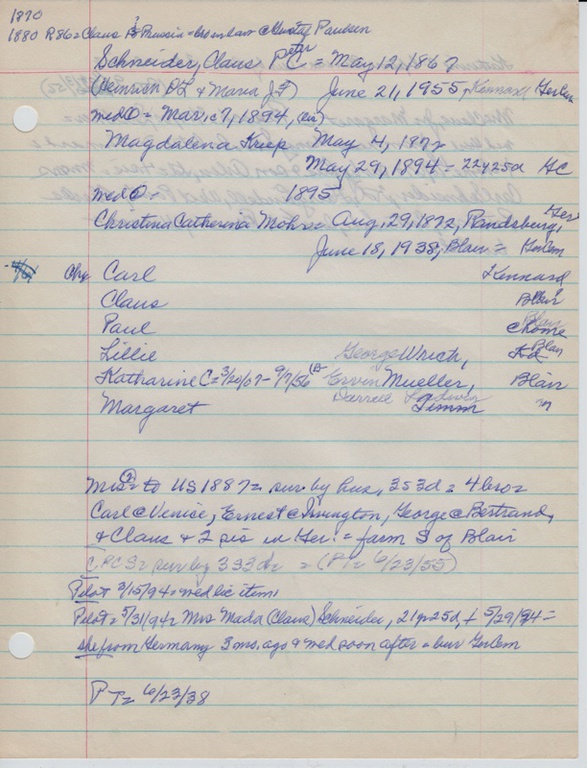 1870
1880 R86 = Claus B Prussia = bro in law c Gustaf Paulsen
Schneider, Claus Peter C = May 12, 1867
(Heinrich D & Maria J F) June 21, 1955, Kennard Ger Cem
med ① = Mar. c7, 1894, (in)
Magdalena Kreep May 4, 1872
May 29, 1894 - 22y 25d GC
med ② = 1895
Christina Catherina Mohr = Aug. 29, 1872, Randsburg, Ger
June 18, 1938, Blair = Ger Cem
Ch= Carl Kennard
Claus Blair
Paul home
Lillie George Wrich, Blair
Katharine C = 3/20/07 - 9/7/56 (B) Ervin Mueller, Blair
Margaret Darrell Ludwig Timm "
Mrs ② = to US 1887 = sur by hus, 3 s 3 d = 4 bro =
Carl c Venice, Ernest c Irvington, George c Bertrand,
& Claus & 2 sis in Ger. = farm S of Blair
CPCS = sur by 3 s 3 d = (PT = 6/23/55)
Pilot 3/15/94 = med lic item
Pilot = 5/31/94 = Mrs Mada (Claus) Schneider, 21y 25d, + 5/29/94 =
she from Germany 3 mos. ago & med soon after = bur Ger Cem
PT = 6/23/38